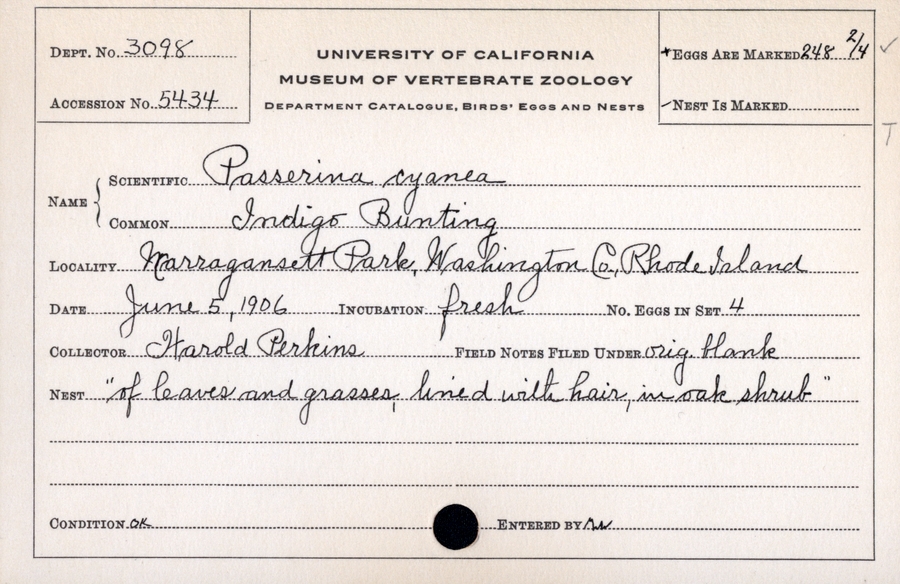 DEPT. No. 3098
UNIVERSITY OF CALIFORNIA
MUSEUM OF VERTEBRATE ZOOLOGY
DEPARTMENT CATALOGUE, BIRDS' EGGS AND NESTS
* EGGS ARE MARKED 248 2/4 ✓
ACCESSION No. 5434
NEST IS MARKED
T
NAME { SCIENTIFIC Passerina cyanea
COMMON Indigo Bunting
LOCALITY Narragansett Park, Washington Co., Rhode Island
DATE June 5, 1906 INCUBATION fresh No. EGGS IN SET 4
COLLECTOR Harold Perkins FIELD NOTES FILED UNDER orig. blank
NEST "of leaves and grasses, lined with hair, in oak shrub"
CONDITION OK ENTERED BY